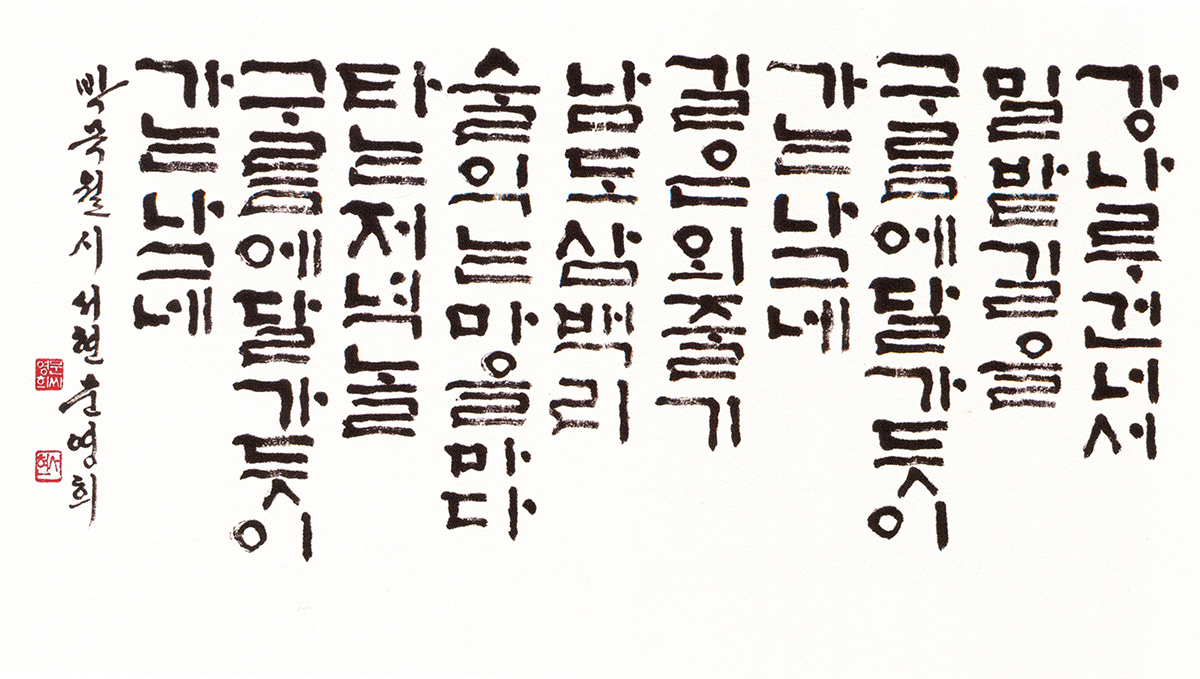 강나루건너서
밀밭길을
구름에달가듯이
가는나그네
길은외줄기
남도삼백리
술익는마을마다
타는저녁놀
구름에달가듯이
가는나그네
박목월시 서현문영희
문씨영희
서현